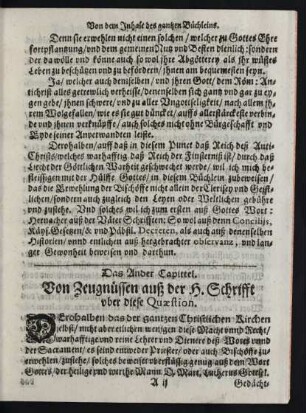 Von dem Inhalt des gantzen Büchleins.
Denn sie erwehlen nicht einen solchen / welcher zu Gottes Ehre
fortpflantzung / vnd dem gemeinen Nutz vnd Besten dienlich: sondern
der da wölle vnd könne auch so wol jhre Abgötterey als jhr wüstes
Leben zu beschützen vnd zu befördern / jhnen am bequemesten seyn.
Ja / welcher auch denselben / vnd jhren Gott / dem Röm: An-
tichrist alles getrewlich verheisse / denenselben sich gantz vnd gar zu ey-
gen gebe / jhnen schwere / vnd zu aller Vngottseligkeit / nach allem jh-
rem Wolgefallen / wie es sie gut dünckt / auffs allerstärckeste verbin-
de vnd jhnen verknüpffe / auch solches nicht ohne Bürgeschafft vnd
Eyde seiner Anverwandten leiste.
Derohalben / auff daß in diesem Punct daß Reich deß Anti-
Christs / welches warhafftig daß Reich der Finsternüß ist / durch daß
Liecht der Göttlichen Warheit geschwächet werde / wil ich mich be-
fleissigen mit der Hülffe Gottes / in diesem Büchlein zubeweisen /
das die Erwehlung der Bischöffe nicht allein der Clerisey vnd Geist-
lichen / sondern auch zugleich den Leyen oder Weltlichen gebühre
vnd zustehe. Vnd solches wil ich zum ersten auß Gottes Wort:
Hernacher auß der Väter Schrifften: So wol auß denen Conciliis,
Käys. Gesetzen / & vnd Päbstl. Decreten, als auch auß denenselben
Historien / vnnd entlichen auß hergebrachter observanz, vnd lan-
ger Gewonheit beweisen vnd darthun.
Das Ander Capittel.
Von Zeugnüssen auß der H. Schrifft
vber diese Quæstion.
Derohalben das der gantzen Christlichen Kirchen
selbst / nicht aber etlichen wenigen diese Macht vnnd Recht /
warhafftige vnd reine Lehrer vnd Diener deß Worts vnnd
der Sacrament / es seind entweder Priester / oder auch Bischöffe zu er-
wehlen / zustehe / solches beweiset vberflüssig gnug auß dem Wort
Gottes / der heilige vnd werthe Mann D. Mart. Lutherus Gottsel.
A ij Gedächt-